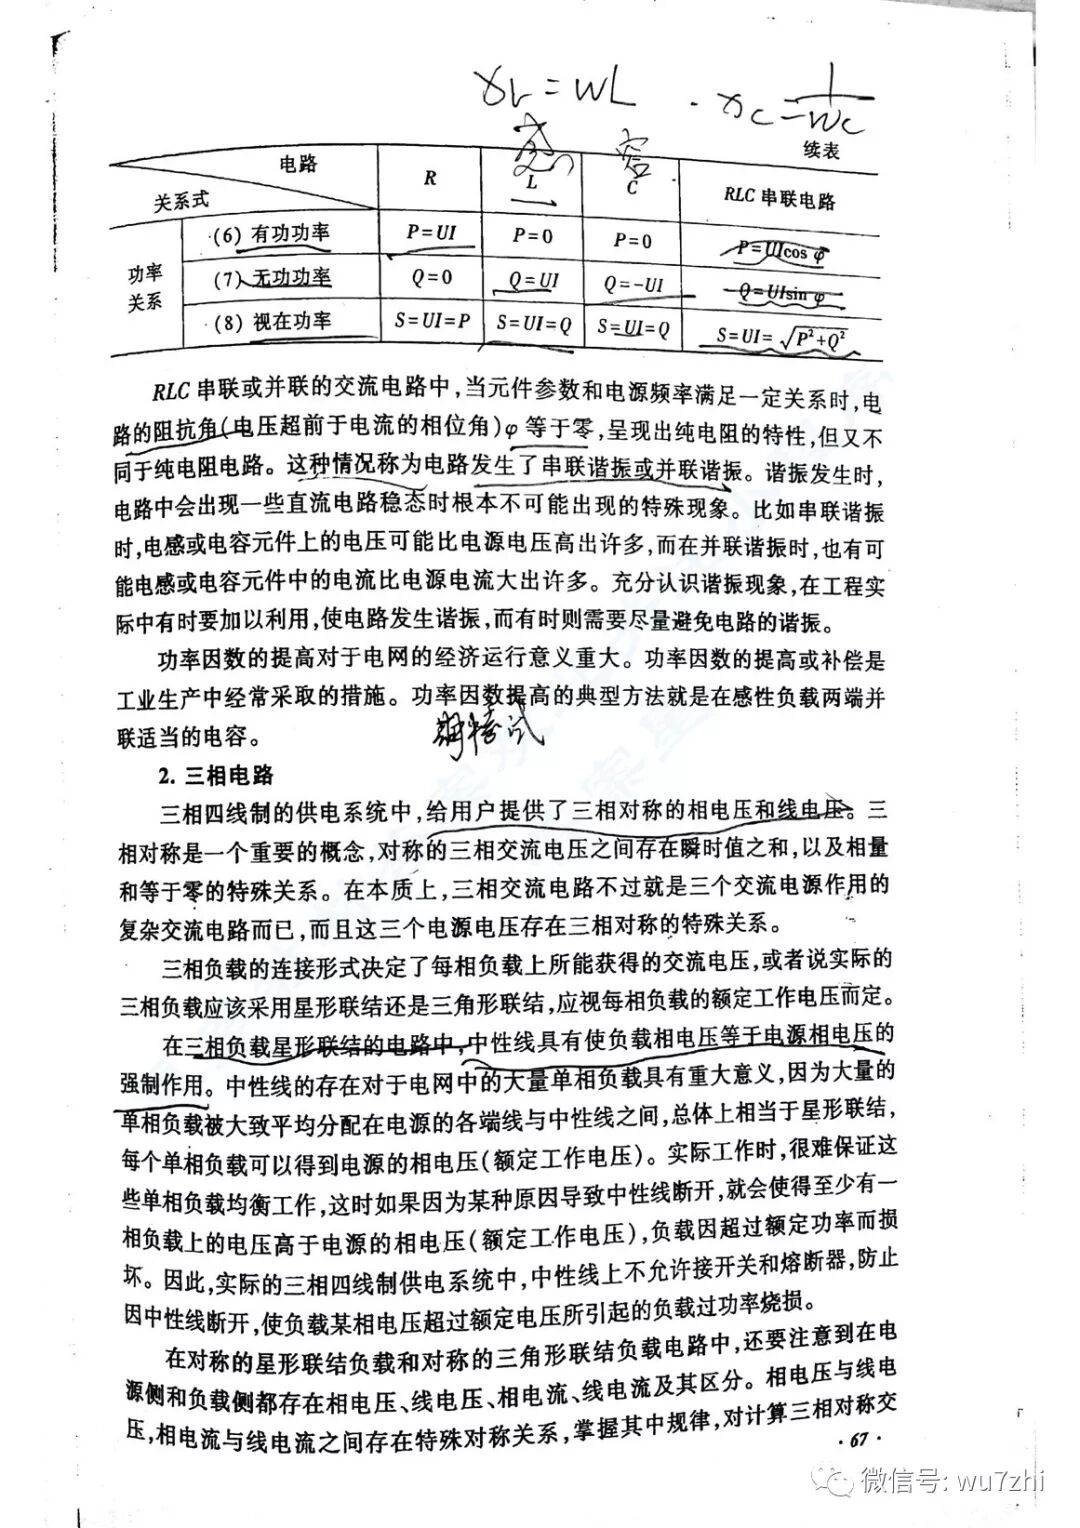 XL=WL
xc=1/wc
续表
感 容
电路 R L C RLC 串联电路
关系式
功率关系 (6) 有功功率 P=UI P=0 P=0 P=UIcos φ
(7) 无功功率 Q=0 Q=UI Q=-UI Q=UIsin φ
(8) 视在功率 S=UI=P S=UI=Q S=UI=Q S=UI=√P²+Q²
RLC 串联或并联的交流电路中,当元件参数和电源频率满足一定关系时,电
路的阻抗角(电压超前于电流的相位角)φ 等于零,呈现出纯电阻的特性,但又不
同于纯电阻电路。这种情况称为电路发生了串联谐振或并联谐振。谐振发生时,
电路中会出现一些直流电路稳态时根本不可能出现的特殊现象。比如串联谐振
时,电感或电容元件上的电压可能比电源电压高出许多,而在并联谐振时,也有可
能电感或电容元件中的电流比电源电流大出许多。充分认识谐振现象,在工程实
际中有时要加以利用,使电路发生谐振,而有时则需要尽量避免电路的谐振。
功率因数的提高对于电网的经济运行意义重大。功率因数的提高或补偿是
工业生产中经常采取的措施。功率因数提高的典型方法就是在感性负载两端并
联适当的电容。
2. 三相电路
三相四线制的供电系统中,给用户提供了三相对称的相电压和线电压。三
相对称是一个重要的概念,对称的三相交流电压之间存在瞬时值之和,以及相量
和等于零的特殊关系。在本质上,三相交流电路不过就是三个交流电源作用的
复杂交流电路而已,而且这三个电源电压存在三相对称的特殊关系。
三相负载的连接形式决定了每相负载上所能获得的交流电压,或者说实际的
三相负载应该采用星形联结还是三角形联结,应视每相负载的额定工作电压而定。
在三相负载星形联结的电路中,中性线具有使负载相电压等于电源相电压的
强制作用。中性线的存在对于电网中的大量单相负载具有重大意义,因为大量的
单相负载被大致平均分配在电源的各端线与中性线之间,总体上相当于星形联结,
每个单相负载可以得到电源的相电压(额定工作电压)。实际工作时,很难保证这
些单相负载均衡工作,这时如果因为某种原因导致中性线断开,就会使得至少有一
相负载上的电压高于电源的相电压(额定工作电压),负载因超过额定功率而损
坏。因此,实际的三相四线制供电系统中,中性线上不允许接开关和熔断器,防止
因中性线断开,使负载某相电压超过额定电压所引起的负载过功率烧损。
在对称的星形联结负载和对称的三角形联结负载电路中,还要注意到在电
源侧和负载侧都存在相电压、线电压、相电流、线电流及其区分。相电压与线电
压,相电流与线电流之间存在特殊对称关系,掌握其中规律,对计算三相对称交
·67·
微信号: wu7zhi